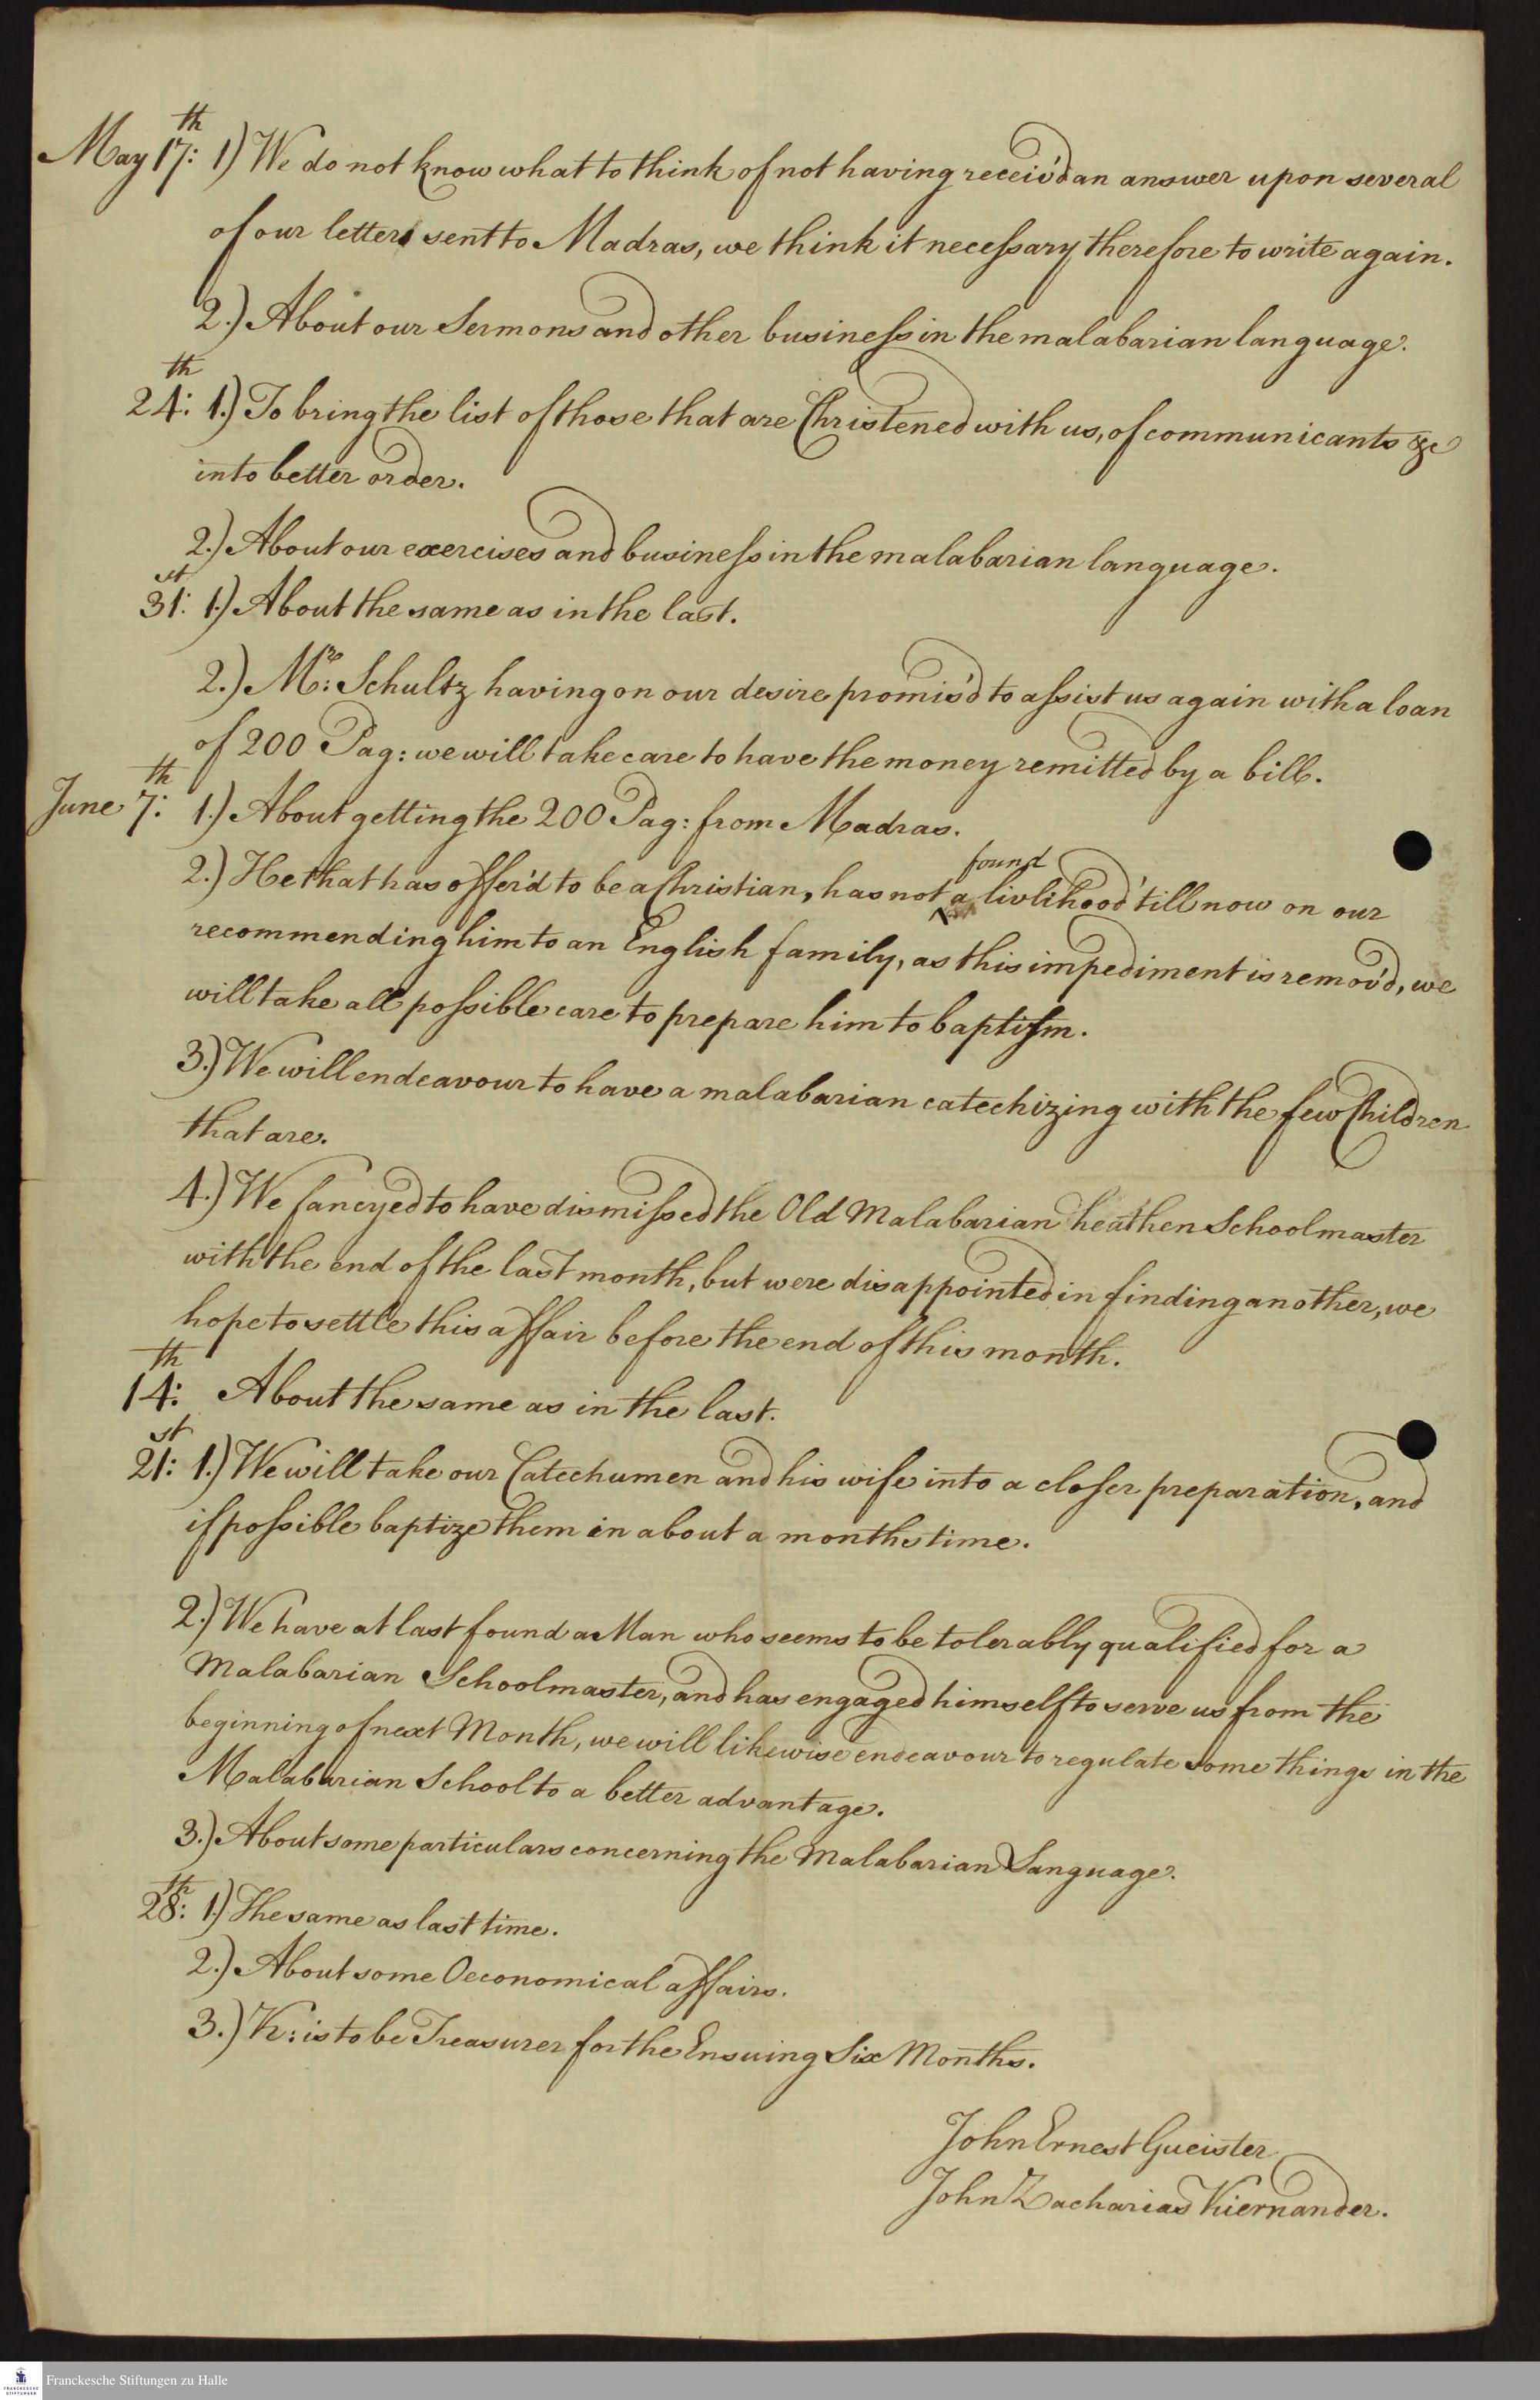 May 17th: 1) We do not know what to think of not having receiv'd an answer upon several
of our letters sent to Madras, we think it necessary therefore to write again.
2.) About our Sermons and other business in the malabarian language.
24th: 1.) To bring the list of those that are Christened with us, of communicants &c
into better order.
2.) About our exercises and business in the malabarian language.
31st: 1.) About the same as in the last.
2.) Mr: Schultz having on our desire promis'd to assist us again with a loan
of 200 Pag: we will take care to have the money remitted by a bill.
June 7th: 1.) About getting the 200 Pag: from Madras.
2.) He that has offer'd to be a Christian, has not found a livlihood till now on our
recommending him to an English family, as this impediment is remov'd, we
will take all possible care to prepare him to baptism.
3.) We will endeavour to have a malabarian catechizing with the few Children
that are.
4.) We fancyed to have dismissed the Old Malabarian heathen Schoolmaster
with the end of the last month, but were disappointed in finding another, we
hope to settle this affair before the end of this month.
14th: About the same as in the last.
21st: 1.) We will take our Catechumen and his wife into a closer preparation, and
if possible baptize them in about a months time.
2.) We have at last found a Man who seems to be tolerably qualified for a
Malabarian Schoolmaster, and has engaged himself to serve us from the
beginning of next Month, we will likewise endeavour to regulate some things in the
Malabarian School to a better advantage.
3.) About some particulars concerning the Malabarian Language.
28th: 1.) The same as last time.
2.) About some Oeconomical affairs.
3.) K: is to be Treasurer for the Ensuing Six Months.
John Ernest Gueister
John Zacharias Kiernander.
Franckesche Stiftungen zu Halle